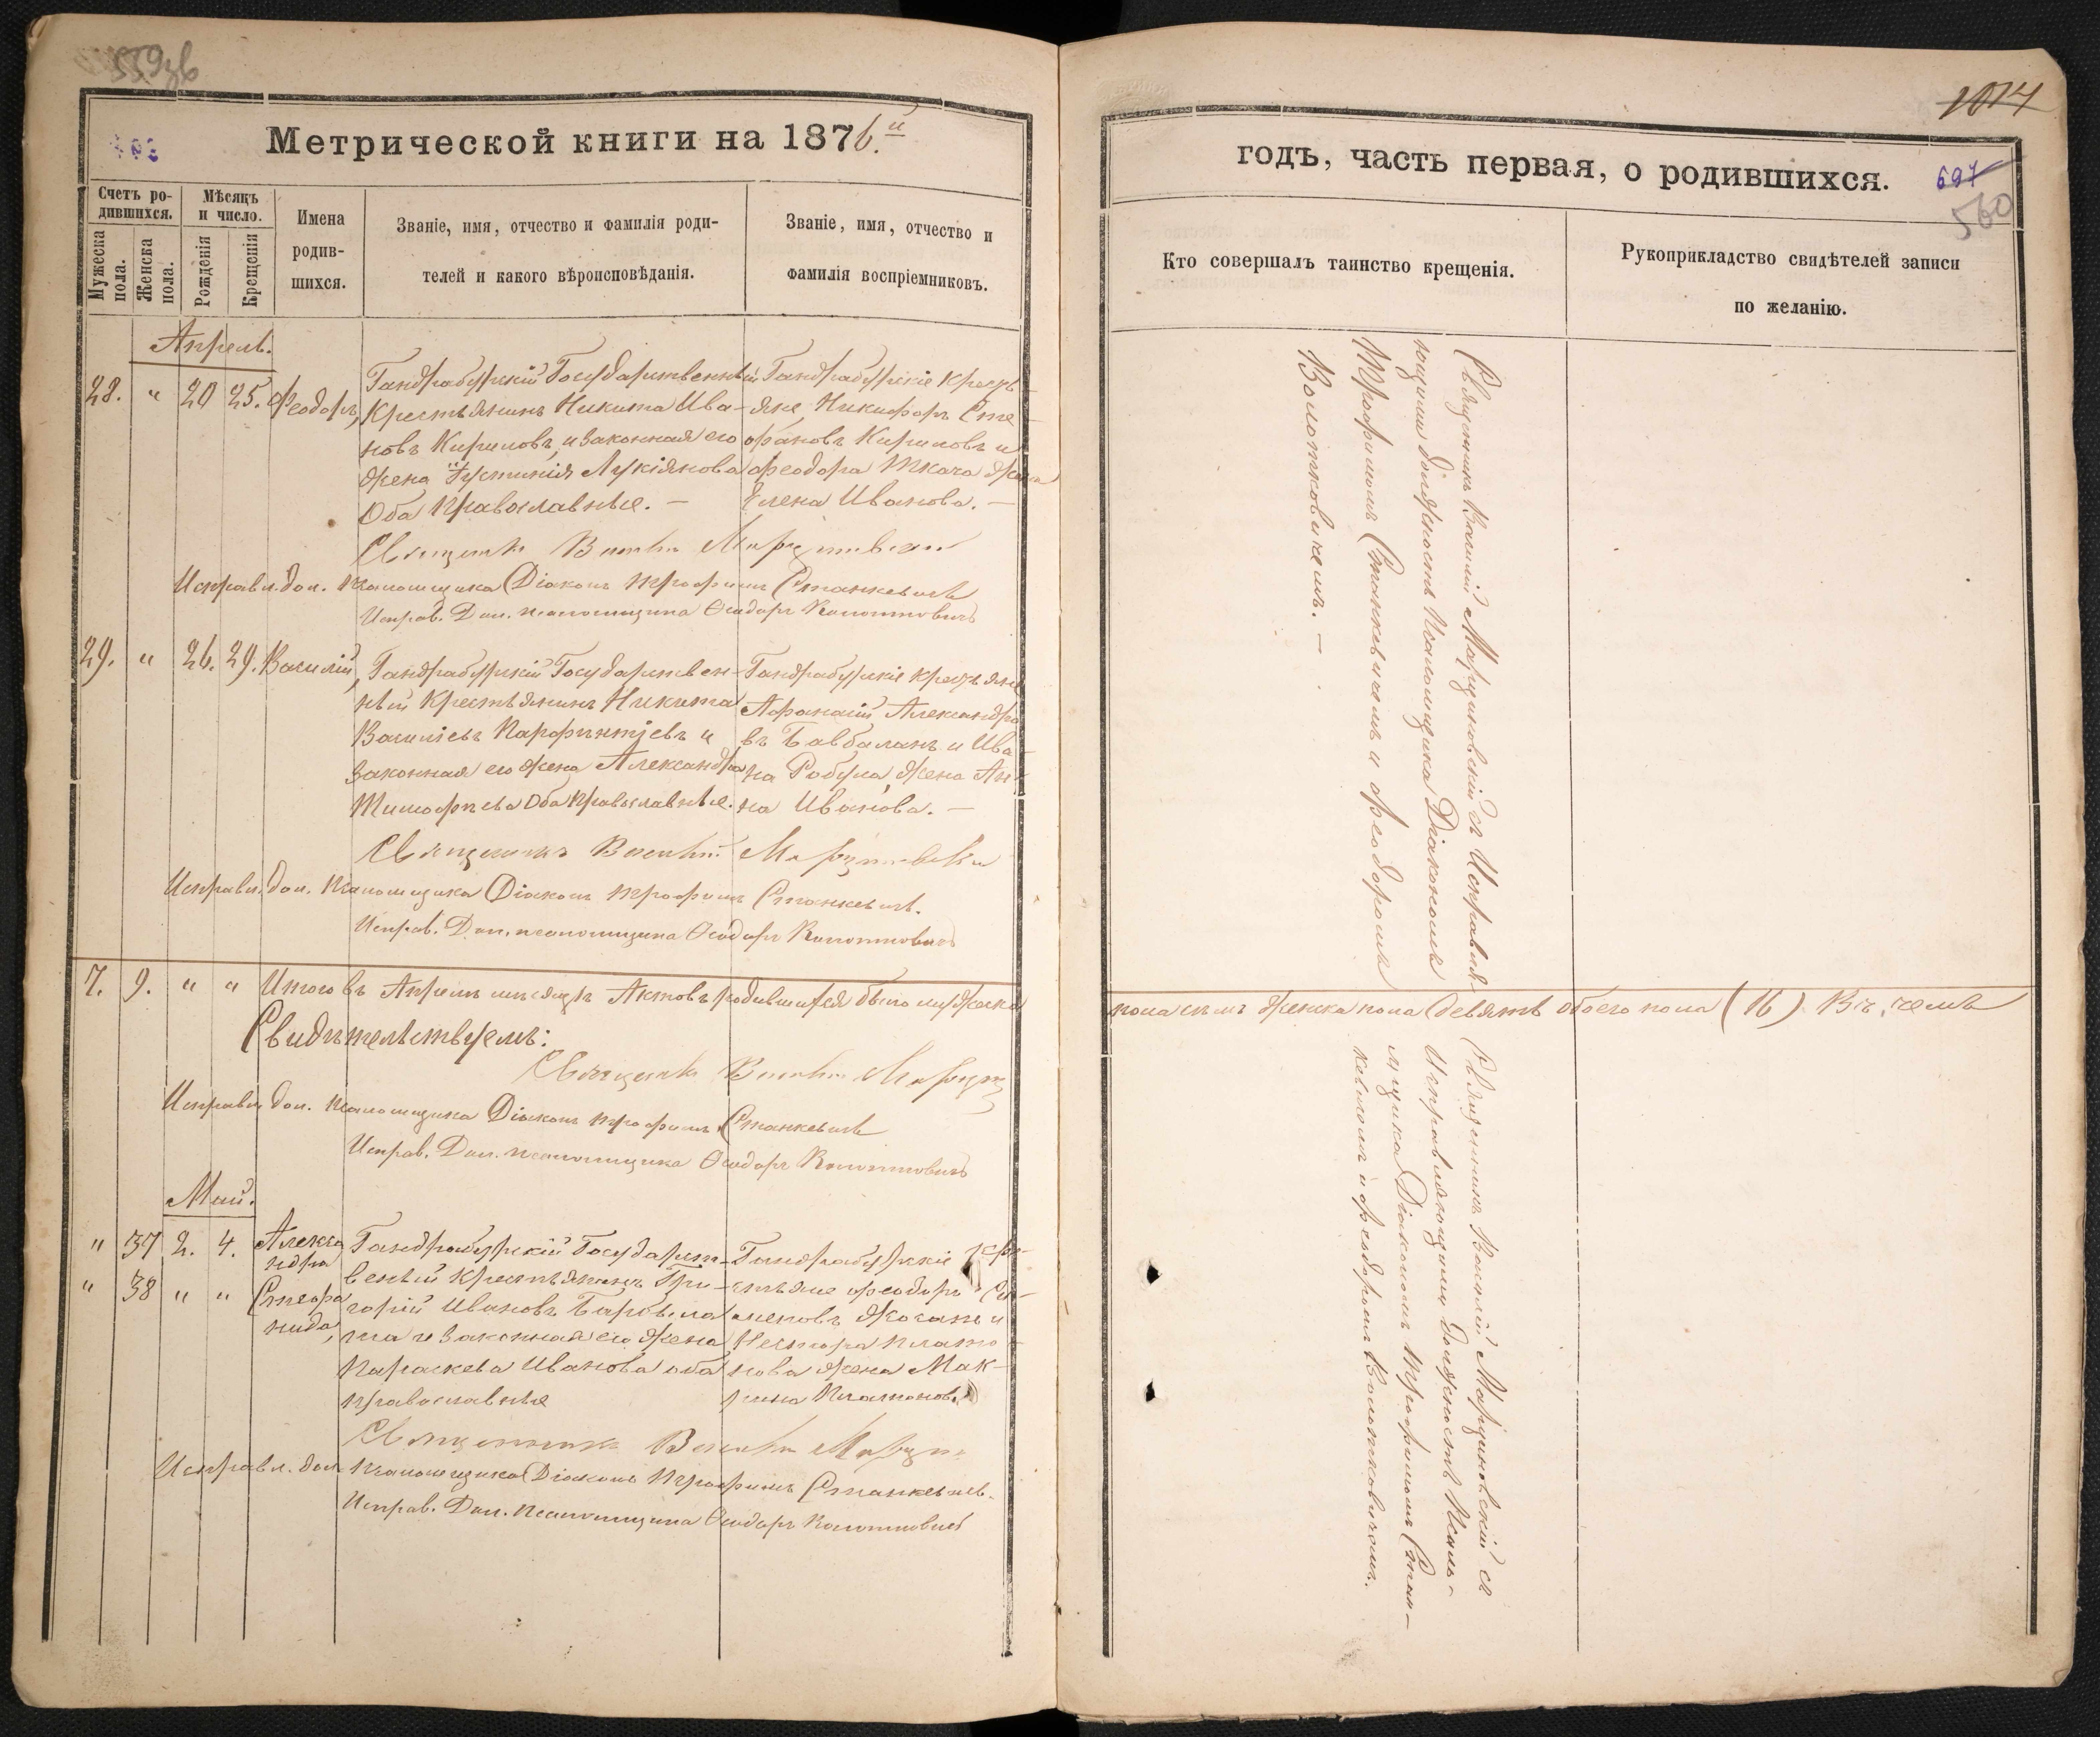 559об
Метрической книги на 1876.й
Счетъ ро-
дившихся.
Мужеска пола.
Женска пола.
Мѣсяцъ
и число.
Рожденія
Крещенія
Имена
родив-
шихся.
Званіе, имя, отчество и фамилія роди-
телей и какого вѣроисповѣданія.
Званіе, имя, отчество и
фамилія воспріемниковъ.
Апрель.
28. " 20 25. Феодоръ,
Гандрабурскій Государственный
Крестьянинъ Никита Ива-
новъ Кириловъ, и законная его
жена Іустинія Лукіянова
Оба Православные. —
Гандрабурскіе кресть-
яне, Никифоръ Сте
фановъ Кириловъ и
Феодора Ткача жена
Елена Иванова. —
Священникъ Василій Марциновскій
Исправл. дол. Псаломщика Діаконъ Трофимъ Станкевичъ
Исправ. Дол. псаломщика Ѳеодоръ Колтоновичъ
29. " 26. 29. Василій,
Гандрабурскій Государствен-
ный Крестьянинъ Никита
Василіевъ Парфентіевъ и
законная его жена Александра
Тимофѣева Оба Православные.
Гандрабурскіе крестьяне
Афанасій Александро
въ Бавбаланъ и Ива-
на Робула, жена Ан-
на Иванова. —
Священникъ Василій Марциновскій
Исправл. дол. Псаломщика Діаконъ Трофимъ Станкевичъ.
Исправ. Дол. псаломщика Ѳеодоръ
7. 9. " " Итого въ Апрелѣ мѣсяцѣ Актовъ родившихся было мужеска
Свидѣтельствуемъ:
Священникъ Василій Марцин
Исправл. дол. Псаломщика Діаконъ Трофимъ Станкевичъ
Исправ. Дол. псаломщика Ѳеодоръ
Май.
" 37 2. 4. Алекса
ндра
" 38 " " Стефа
нида,
Гандрабурскій Государст-
венный крестьянинъ Гри-
горій Ивановъ
и законная его жена
Параскева Иванова оба
православные
Гандрабурскіе кре-
стьяне Феодоръ Си-
меновъ и
Нестора Плато
нова жена Мак-
рина Платонова
Священникъ Василій Марцин
Исправл. дол. Псаломщика Діаконъ Трофимъ Станкевичъ.
Исправ. Дол. псаломщика Ѳеодоръ
1014
годъ, часть первая, о родившихся.
697
560
Кто совершалъ таинство крещенія.
Рукоприкладство свидѣтелей записи
по желанію.
Священникъ Василій Марциновскій съ Исправля-
ющими должность Псаломщика Діакономъ
Трофимомъ Станкевичемъ и Феодоромъ
пола семь женска пола девять обоего пола (16) Въ чемъ
Священникъ Василій Марциновскій съ
Исправляющими должность Псало-
мщика Діакономъ Трофимомъ Стан-
кевичемъ и Феодоромъ